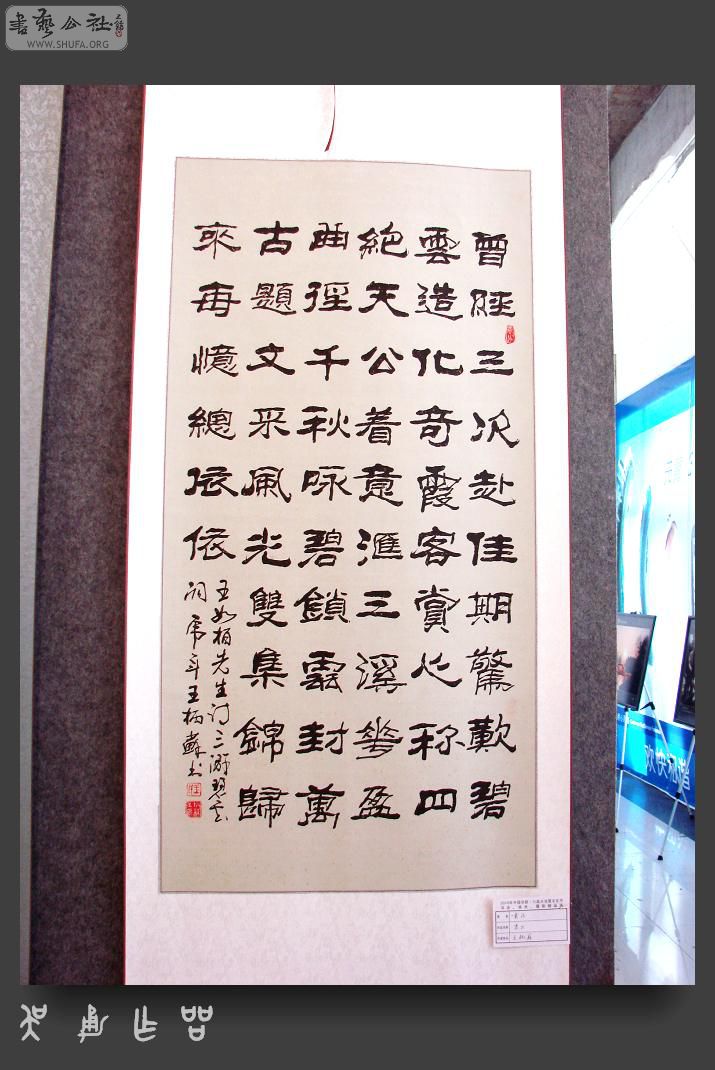 書藝公社
WWW.SHUFA.ORG
曾經三次赴佳期驚歎碧
雲造化奇霞客賞心称四
絶天公着意滙三溪華盈
曲徑千秋咏碧鎖雲封萬
古題文采風光雙集錦歸
來再憶總依依
王如柏先生门三游碧云
词虎年王柄蘇书
欢快和谐